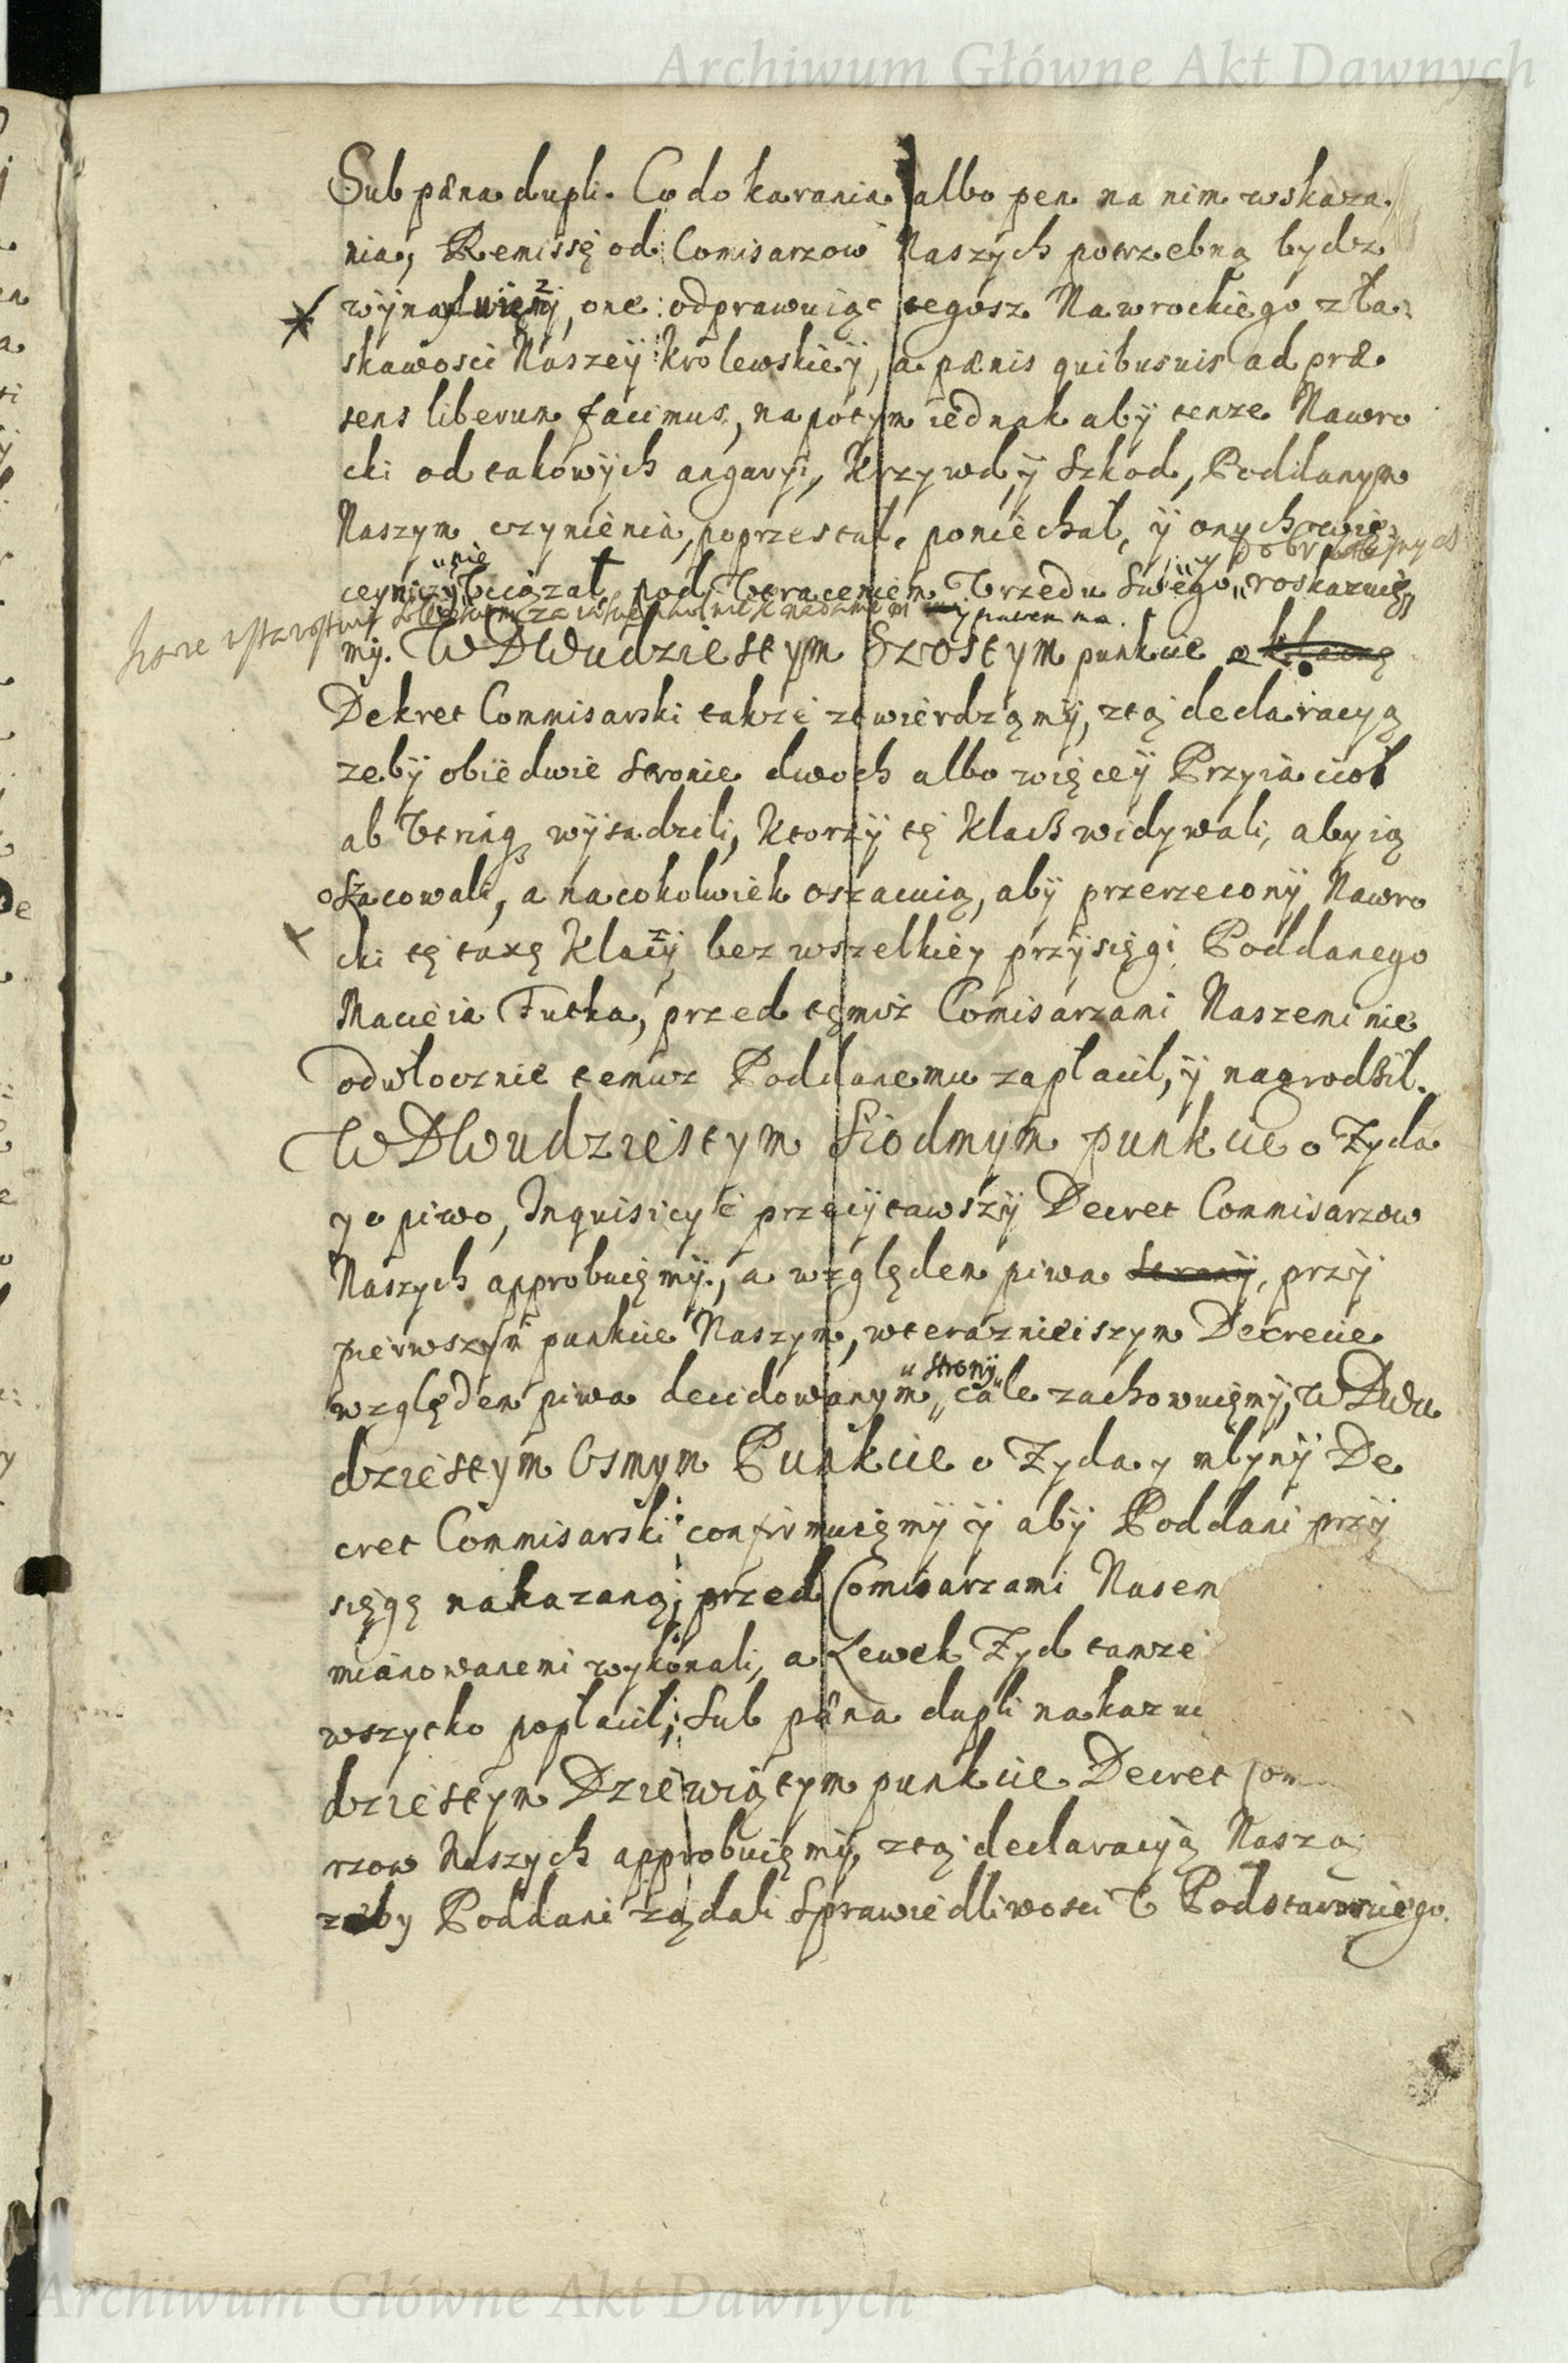 Archiwum Główne Akt Dawnych
Sub pæna dupli. Co do karania albo pen na nim wskaza
nia, Remissę od Comisarzow Naszych potrzebną bydz
one odprawuiąc tegosz Nawrockiego z ła
skawosci Naszeÿ Krolewskieÿ, a pænis quibusuis ad præ
sens liberum facimus, napotym iednak abÿ tenze Nawro
cki od takowÿch angaryi, Krzywd, ÿ Szkod, Poddanym
Naszym czÿnienia, poprzestał, poniechał, ÿ onych
nie
pod Vtraceniem Vrzedu Swego roskazuię
mÿ. W DWudziestym Szostym punkcie
Dekret Commisarski takze ztwierdząmÿ, ztą declaracyą
zebÿ obiedwie stronie dwoch albo więceÿ Przyiacioł
ab Vtrinq wÿsadzili, Ktorzÿ tę Klacß widywali, abyią
oszacowali, a nacokolwiek oszacuią, abÿ przerzeconÿ Nawro
cki tę taxę Klaczÿ bez wszelkiey przÿsięgi Poddanego
Macieia Futka, przed tęmiż Comisarzami Naszemi nie
odwłocznie temuz Poddanemu zapłacił, ÿ nagrodßił.
W DWudziestym Siodmym punkcie o Zyda
y o piwo, Inquisicyę przeczÿtawszÿ Decret Commisarzow
Naszych approbuięmÿ, a względem piwa przÿ
pierwszym punkcie Naszym, wteraznieiszym Decrecie
stronÿ
względem piwa decidowanym, cale zachowuięmÿ, W DWu
dziestym Osmym Punkcie o Zyda y młynÿ De
cret Commisarski confirmuięmÿ ÿ abÿ Poddani przÿ
sięgę nakazaną, przed Comisarzami Nasem
mianowanemi wykonali, a Lewek Zyd tamze
wszytko popłacił, Sub pæna dupli nakazu
dziestym Dziewiątym punkcie Decret Com
rzow Naszych approbuięmÿ, ztą declaracyą Naszą
zeby Poddani ządali Sprawiedliwosci V Podstarosciego
Archiwum Główne Akt Dawnych